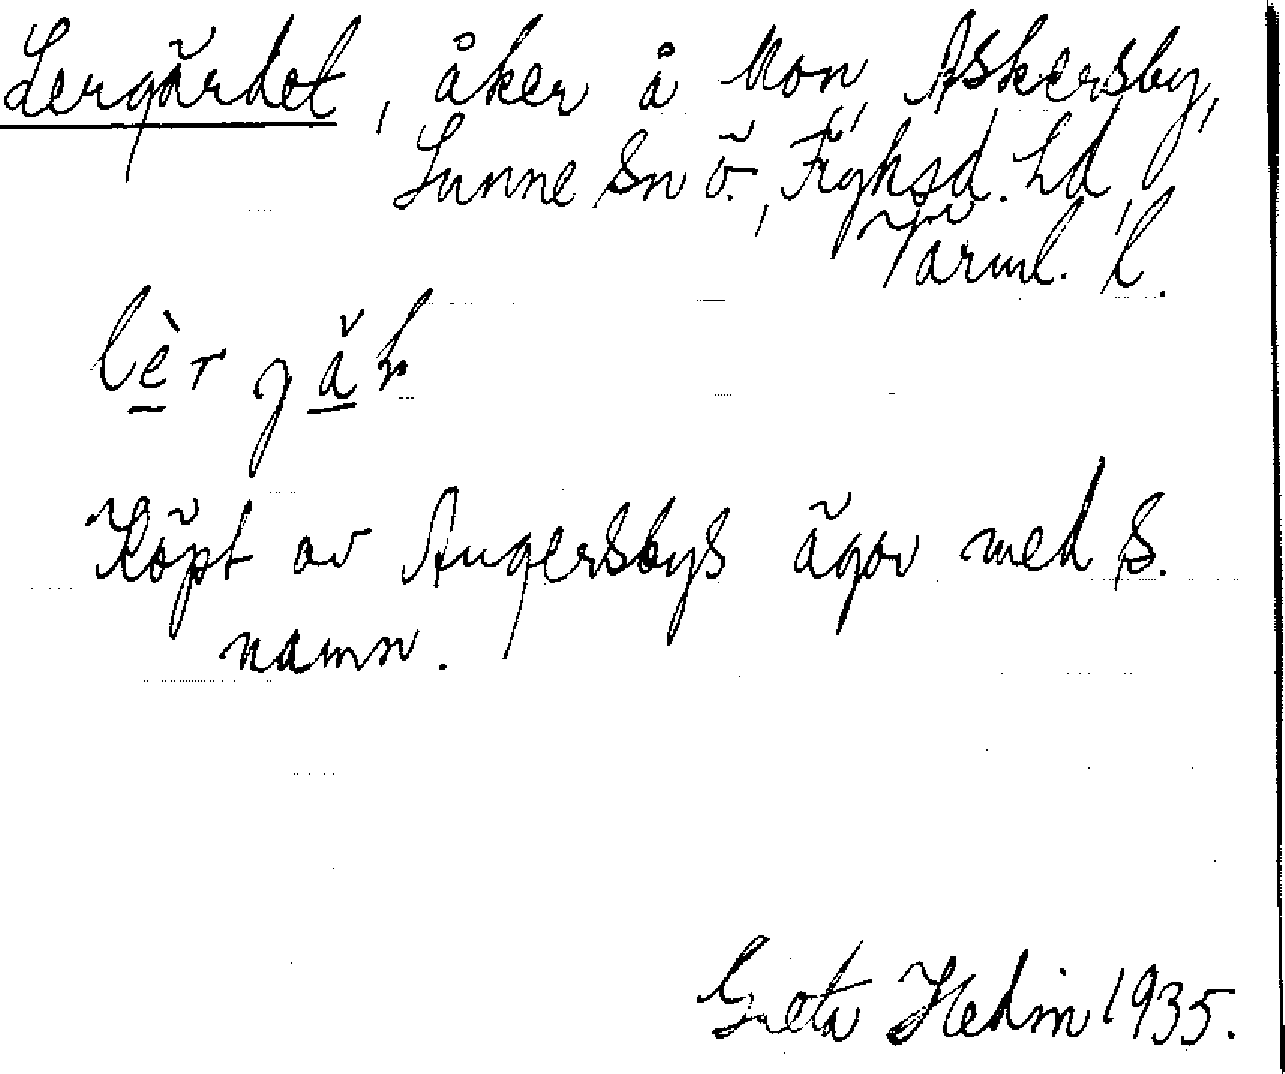 Lergärdet, åker å Mon, Askersby,
Sunne Sn ö., Fryksd. hd,
Värml. l.
Köpt av Augersbys ägor med s.
namn.
Greta Hedin 1935.